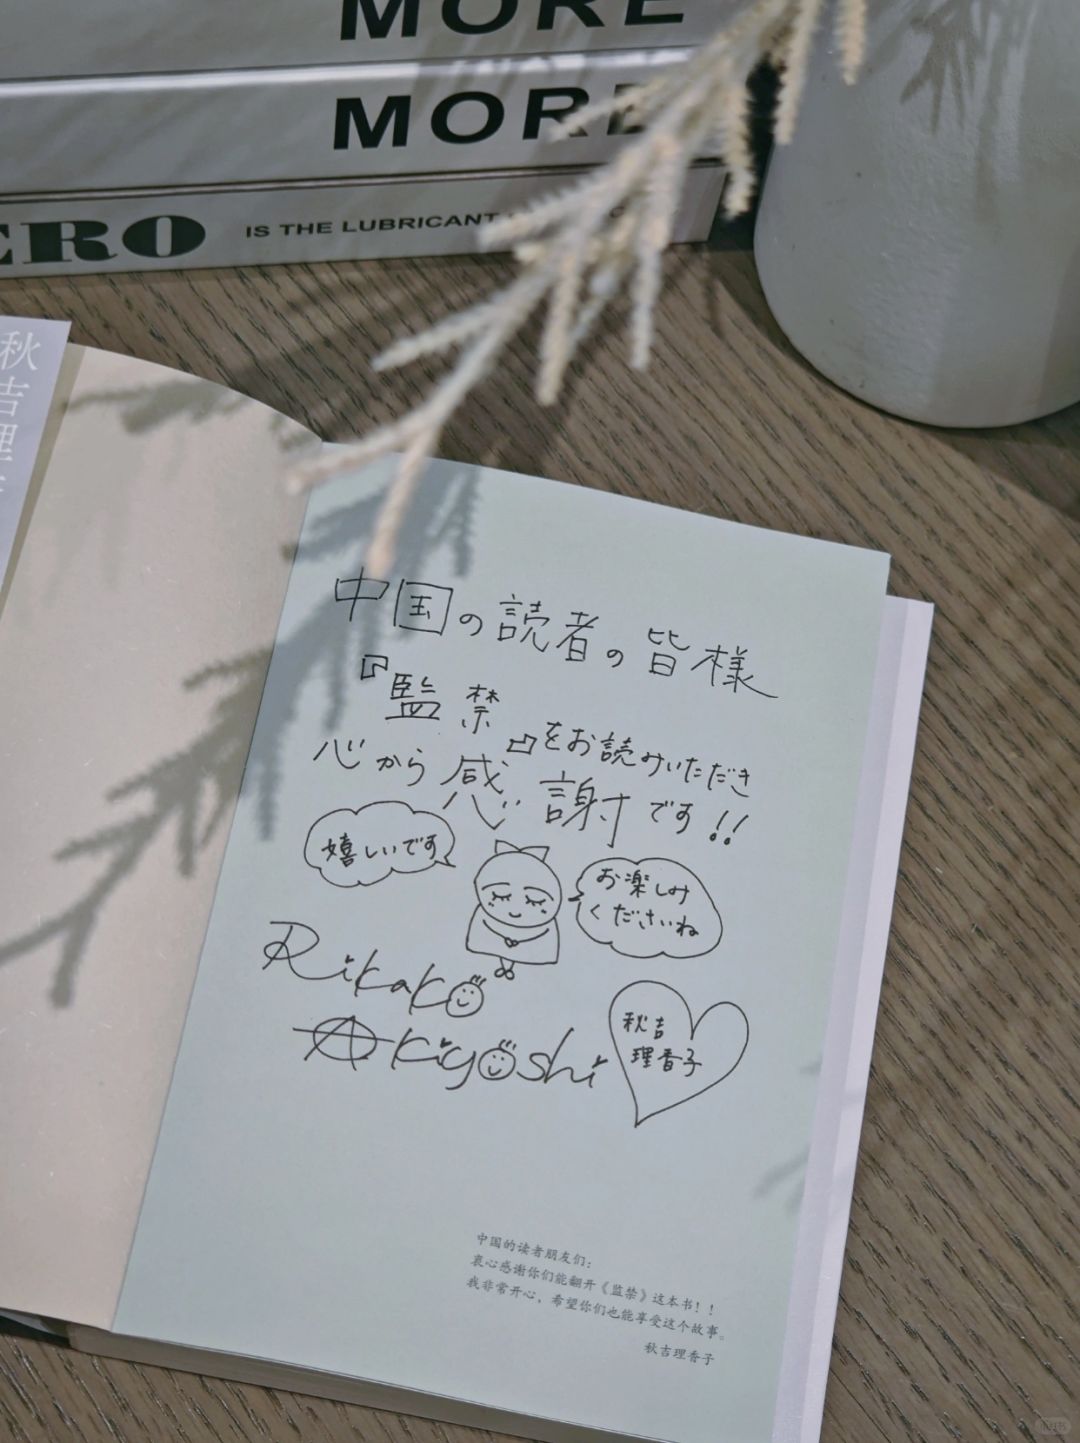 MORE
MORE
ERO IS THE LUBRICANT
秋吉理
中国の読者の皆様
『監禁』をお読みいただき
心から感謝です!!
嬉しいです
お楽しみ
くださいね
Rikako
Akiyoshi
秋吉
理香子
中国的读者朋友们：
衷心感谢你们能翻开《监禁》这本书！！
我非常开心，希望你们也能享受这个故事。
秋吉理香子